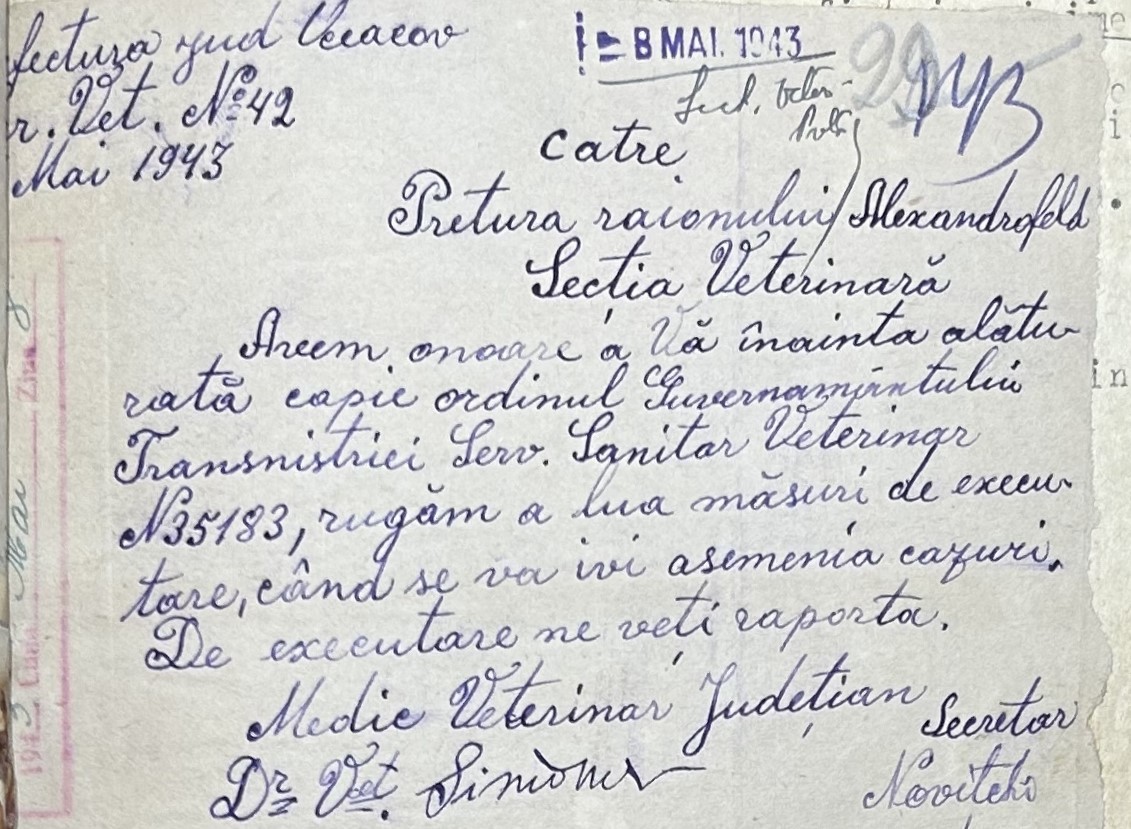 fectura jud Oceacov
r. Vet. № 42
Mai 1943
- 8 MAI. 1943
29
catre
Pretura raionului Alexandrofeld
Secția Veterinară
Avem onoare a Vă înainta alătu-
rată copie ordinul Guvernamântului
Transnistriei Serv. Sanitar Veterinar
N 35183, rugăm a lua măsuri de execu-
tare, când se va ivi asemenia cazuri.
De executare ne veti raporta.
Medic Veterinar Județian
Secretar
Dr Vet. Simonov
Novitchi
1943 Luna Mai Ziua 8